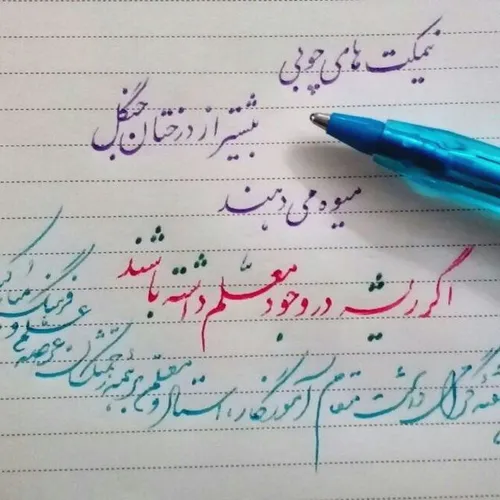 نیمکت های چوبی
بیشتر از درختان جنگل
میوه می دهند
اگر ریشه در وجود معلّم داشته باشند
گرامی داشت مقام آموزگار، استاد و معلم بر همه
فرهنگ
عرصه
علم و